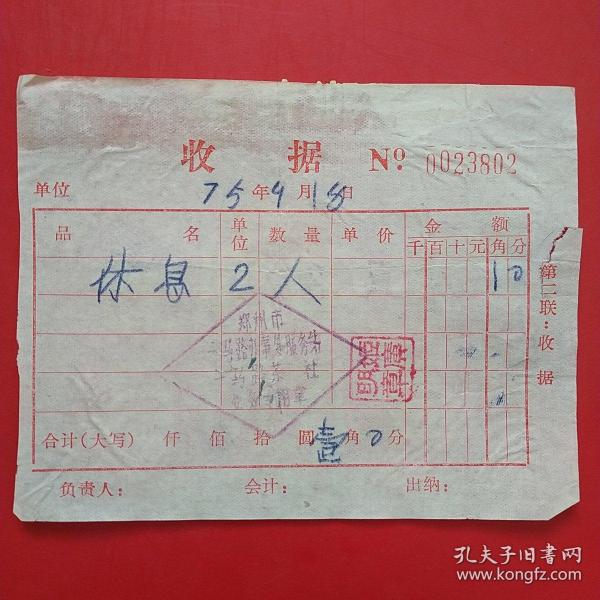 收 据 № 0023802
单位 75年9月18日
品 名 单位 数量 单价 金 额
千 百 十 元 角 分
休息 2人 1 0
郑州市
服务
社
合计(大写) 仟 佰 拾 圆 壹角 0分
负责人: 会计: 出纳:
第二联:收据
孔夫子旧书网
www.kongfz.com